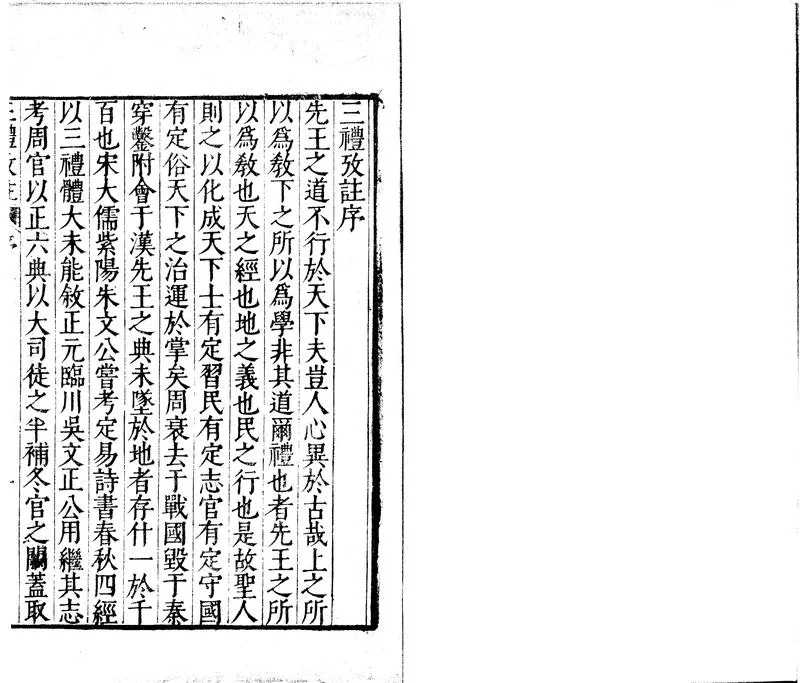 三禮攷註序
先王之道不行於天下夫豈人心異於古哉上之所
以爲敎下之所以爲學非其道爾禮也者先王之所
以爲敎也天之經也地之義也民之行也是故聖人
則之以化成天下士有定習民有定志官有定守國
有定俗天下之治運於掌矣周衰去于戰國毀于秦
穿鑿附會于漢先王之典未墜於地者存什一於千
百也宋大儒紫陽朱文公嘗考定易詩書春秋四經
以三禮體大未能敘正元臨川吳文正公用繼其志
考周官以正六典以大司徒之半補冬官之闕蓋取
三禮攷註 序 一